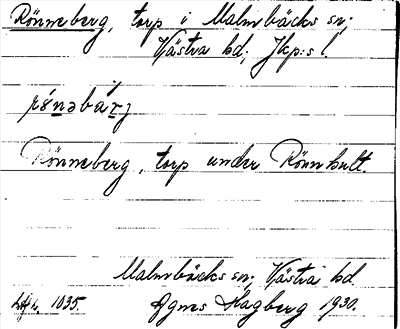 Rönneberg, torp i Malmbäcks sn;
Västra hd, Jkp:s l.
Rönneberg, torp under Rönnhult.
Malmbäcks sn; Västra hd.
1035. Agnes Hagberg 1930.